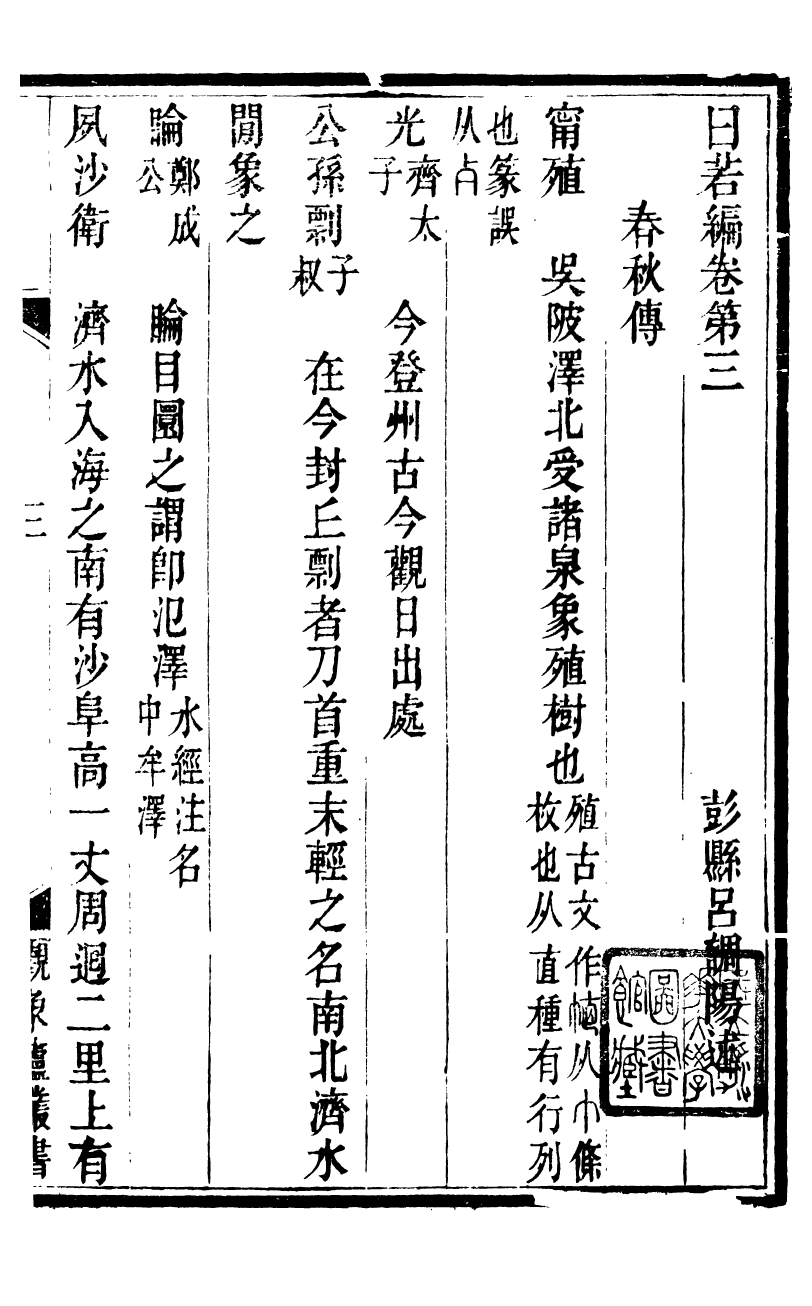 曰若編卷第三
彭縣呂調陽述
春秋傳
甯殖　吳陂澤北受諸泉象殖樹也殖古文作㯰从巾條
枚也从直種有行列
也篆誤
从占
光齊太
子　今登州古今觀日出處
公孫剽子
叔　在今封丘剽者刀首重末輕之名南北濟水
閒象之
睔鄭成
公　睔目圜之謂卽氾澤水經注名
中牟澤
夙沙衛　濟水入海之南有沙阜高一丈周迴二里上有
三
觀象廬叢書
圖書
館藏